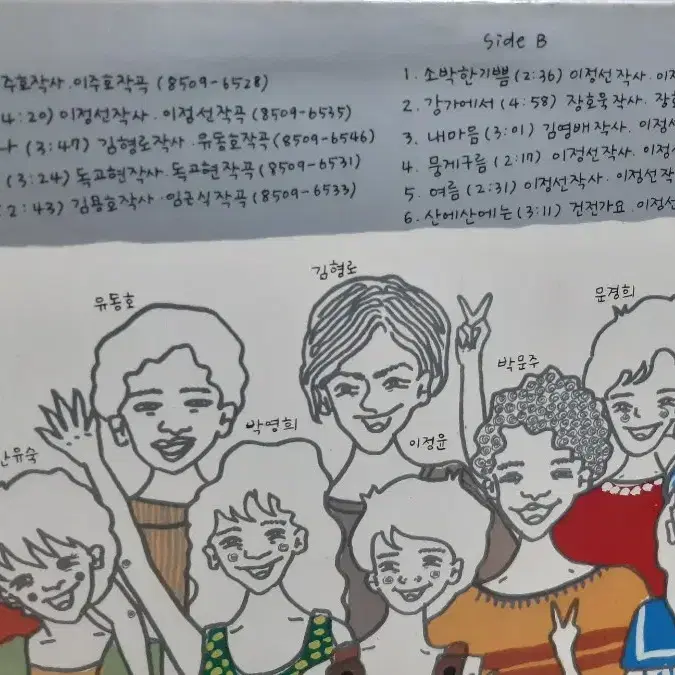 주호작사.이주호작곡(8509-6528)
4:20)이정선작사.이정선작곡(8509-6535)
나 (3:47) 김형로작사.유동호작곡(8509-6546)
(3:24)독고현작사.독고현작곡(8509-6531)
2:43) 김용호작사.임근식작곡(8509-6533)
Side B
1. 소박한기쁨(2:36) 이정선작사.이
2. 강가에서(4:58) 장호욱작사.장
3. 내마음(3:01) 김영배작사.이정
4. 뭉게구름(2:17) 이정선작사.이정선
5. 여름(2:31) 이정선작사.이정선작
6. 산에산에는(3:11) 건전가요.이정선
유동호
김형로
문경희
박문주
박영희
이정윤
유숙